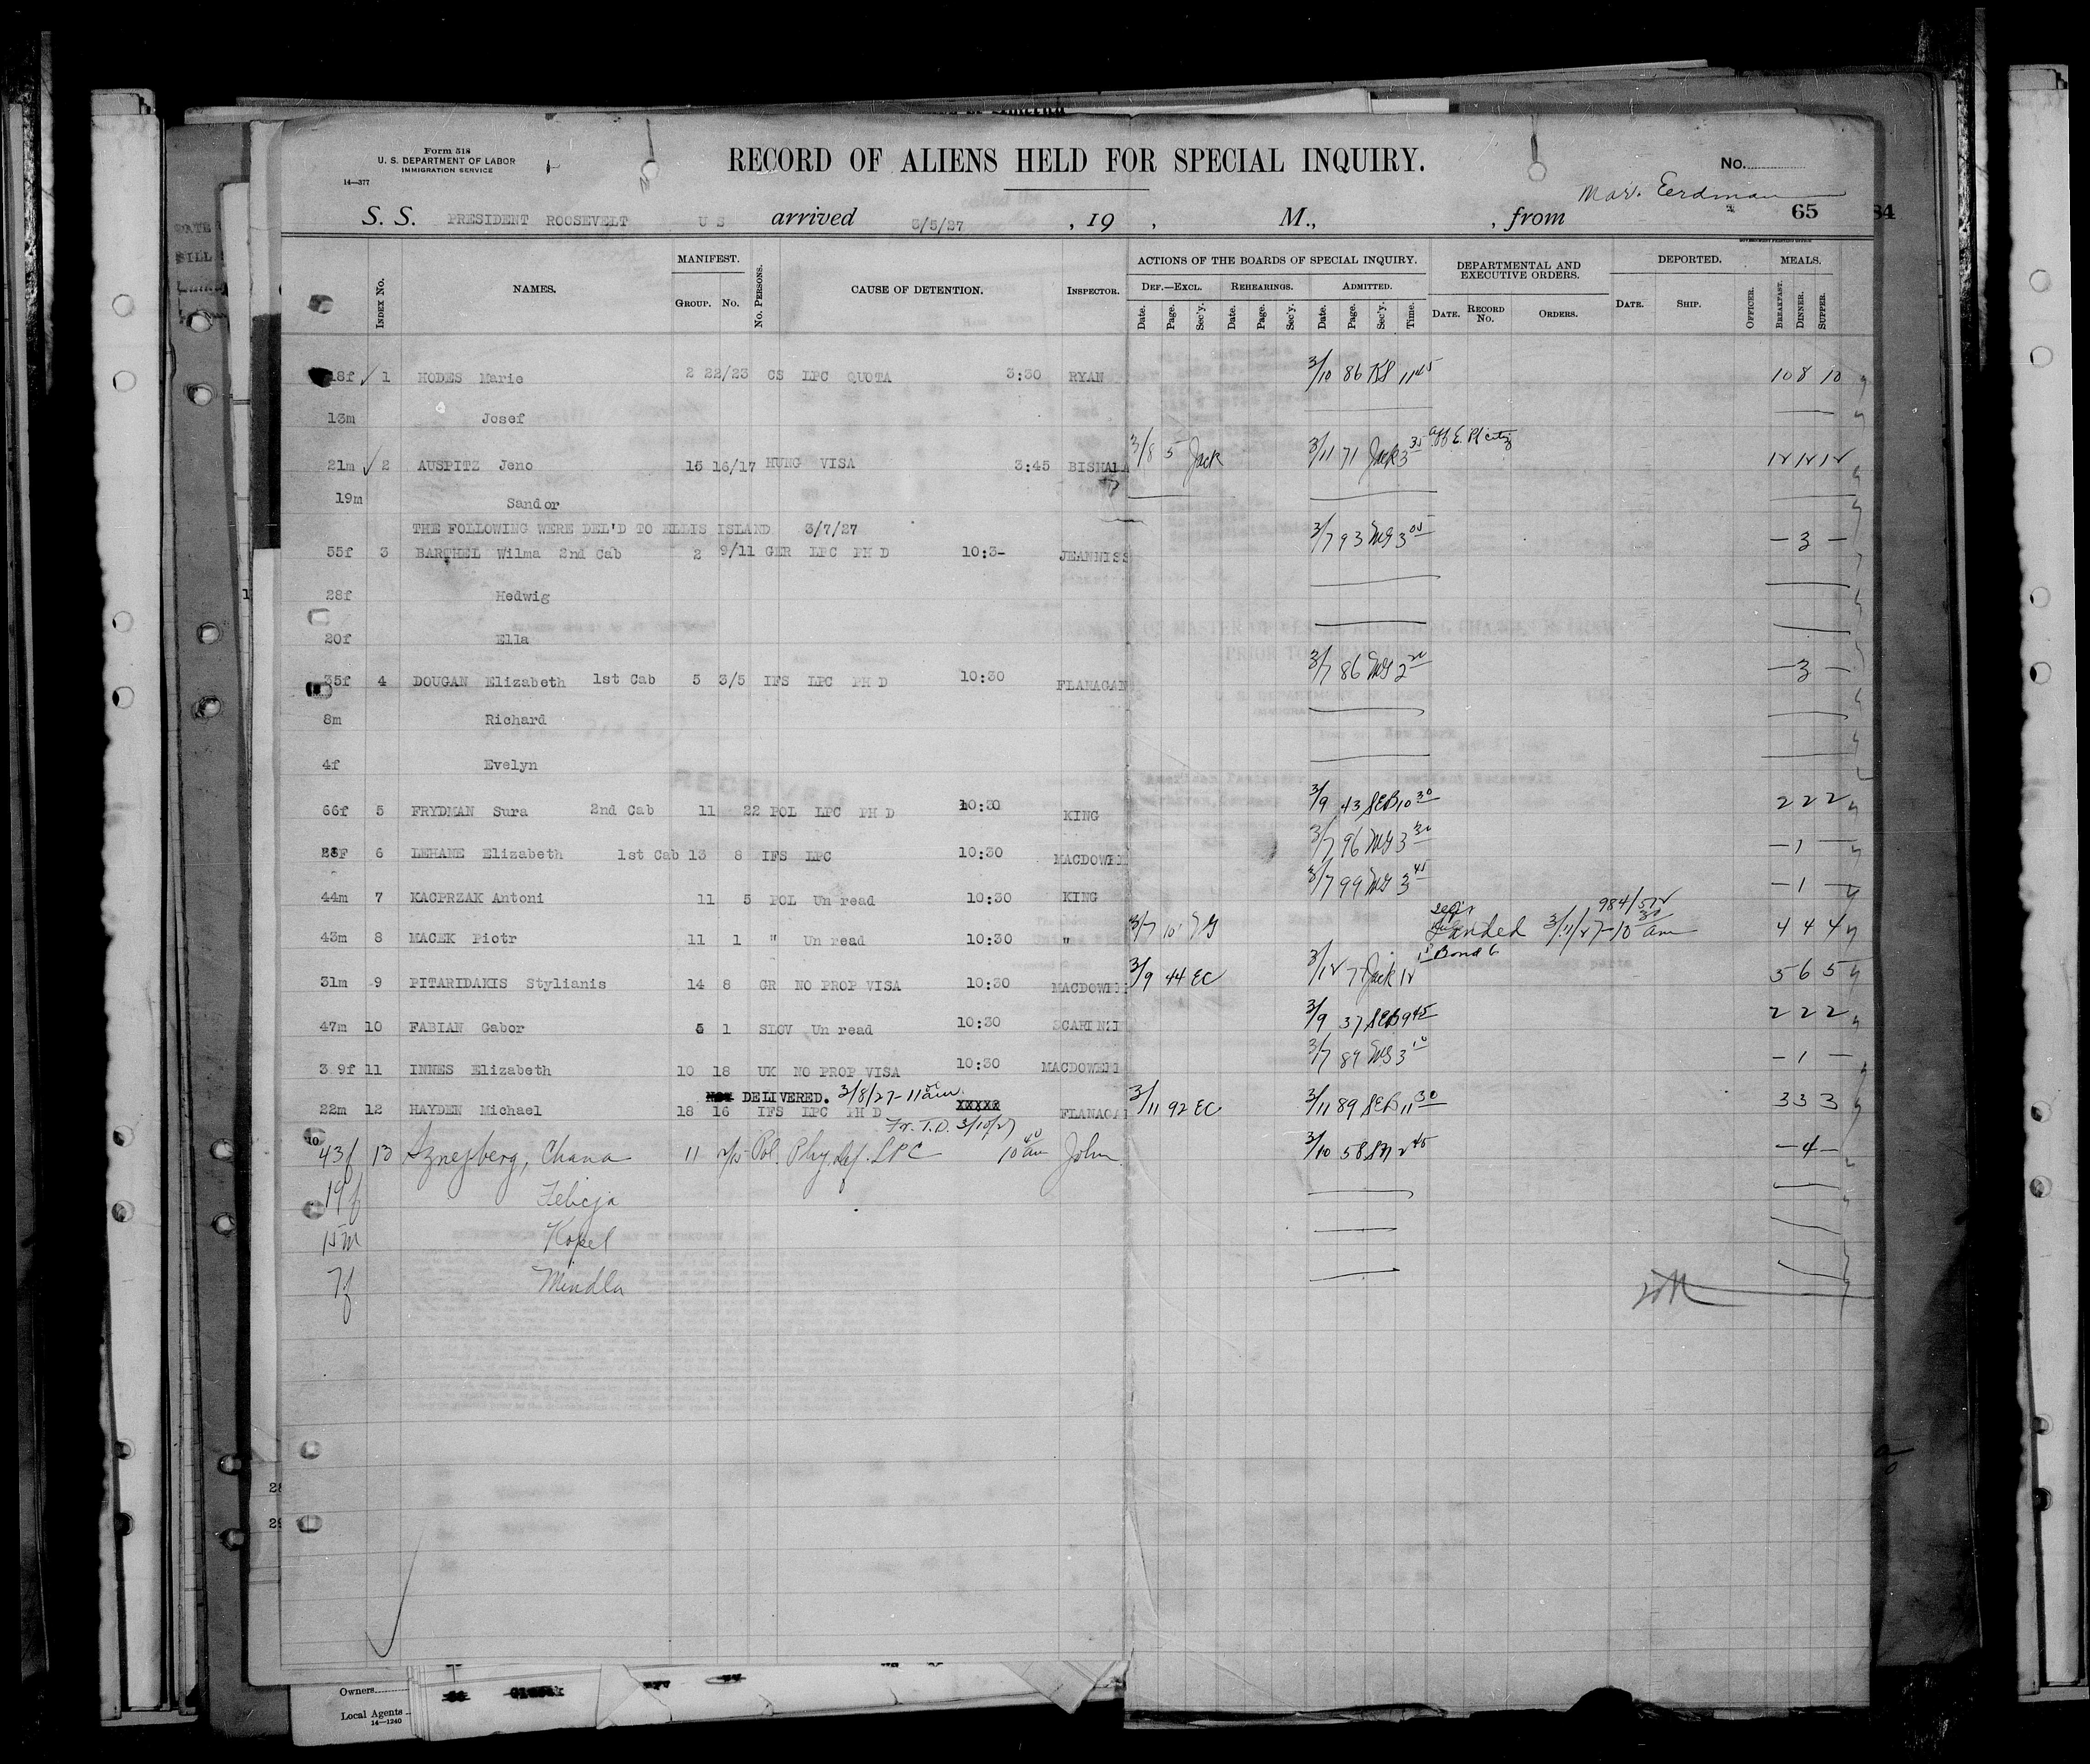 Form 518
U. S. DEPARTMENT OF LABOR
IMMIGRATION SERVICE
14—377
RECORD OF ALIENS HELD FOR SPECIAL INQUIRY.
No.
Mar. Eerdman
S. S. PRESIDENT ROOSEVELT U S arrived 3/5/27 , 19 , M., , from 65 84
INDEX No. NAMES. MANIFEST. GROUP. No. No. PERSONS. CAUSE OF DETENTION. INSPECTOR. ACTIONS OF THE BOARDS OF SPECIAL INQUIRY. DEPARTMENTAL AND EXECUTIVE ORDERS. DEPORTED. MEALS.
DEF.—EXCL. REHEARINGS. ADMITTED.
Date. Page. Sec'y. Date. Page. Sec'y. Date. Page. Sec'y. Time. DATE. RECORD No. ORDERS. DATE. SHIP. OFFICER. BREAKFAST. DINNER. SUPPER.
18f 1 HODES Marie 2 22/23 CS LPC QUOTA 3:30 RYAN 3/10 86 KS 11 45 10 8 10
13m Josef
21m 2 AUSPITZ Jeno 15 16/17 HUNG VISA 3:45 3/8 5 Jack 3/11 71 Jack 3 35 12 12 12
19m Sandor
THE FOLLOWING WERE DEL'D TO ELLIS ISLAND 3/7/27
55f 3 BARTHEL Wilma 2nd Cab 2 9/11 GER LPC PH D 10:3- JEANNISS 3/7 93 MG 3 05 — 3 —
28f Hedwig
20f Ella
35f 4 DOUGAN Elizabeth 1st Cab 5 3/5 IFS LPC PH D 10:30 FLANAGAN 3/7 86 MG 2 20 — 3 —
8m Richard
4f Evelyn
66f 5 FRYDMAN Sura 2nd Cab 11 22 POL LPC PH D 10:30 KING 3/9 43 SEB 10 30 2 2 2
6 LEHANE Elizabeth 1st Cab 13 8 IFS LPC 10:30 MACDOWE 3/7 96 MG 3 30 — 1 —
44m 7 KACPRZAK Antoni 11 5 POL Un read 10:30 KING 3/7 99 MG 3 45 — 1 —
984/512
43m 8 MACEK Piotr 11 1 " Un read 10:30 " 3/7 101 Landed 3/11/27—10 30 am 4 4 4
Bond
31m 9 PITARIDAKIS Stylianis 14 8 GR NO PROP VISA 10:30 MACDOWE 3/9 44 EC 3/12 7 Jack 12 5 6 5
47m 10 FABIAN Gabor 5 1 SLOV Un read 10:30 SCARINZI 3/9 37 SEB 9 45 2 2 2
39f 11 INNES Elizabeth 10 18 UK NO PROP VISA 10:30 MACDOWE 3/7 89 MG 3 10 — 1 —
NOT DELIVERED. 3/8/27—11 am
22m 12 HAYDEN Michael 18 16 IFS LPC PH D XXXXX FLANAGA 3/11 92 EC 3/11 89 SEB 11 30 3 3 3
Fr. T.D. 3/10/27
10
43f 13 Sznejberg, Chana 11 Pol. Phy. Def. LPC 10 40 am John 3/10 58 2 45 — 4 —
19f Felicja
15m Kopel
7f Mindla
28
29
Owners
Local Agents
14—1240